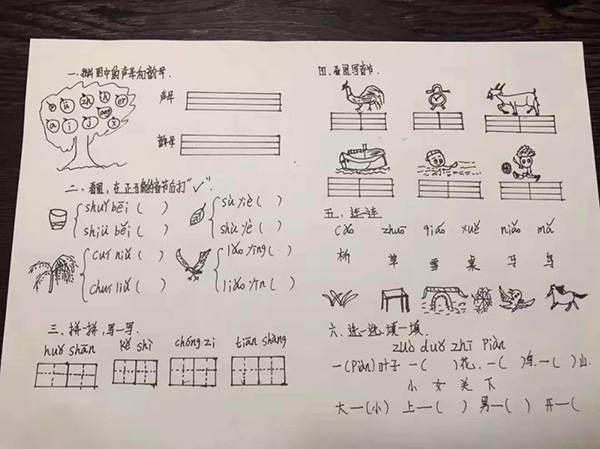 一、找出图中的声母和韵母.
声母
韵母
二、看图,在正确的音节后打"√".
shuǐ bēi ( )
shuǐ běi ( )
sù yiè ( )
shù yè ( )
cuī niǔ ( )
chuí liǔ ( )
lǎo yīng ( )
liǎo yīn ( )
三、拼一拼,写一写.
huǒ shān kě shì chóng zi tiān shàng
四、看图写音节.
五、连一连
cǎo zhuō qiáo xuě niǎo mǎ
桥 草 雪 桌 马 鸟
六、选一选,填一填.
zuò duǒ zhī piàn
一(piàn)叶子 一( )花 一( )鸟 一( )山
小 女 关 下
大—(小) 上—( ) 男—( ) 开—(